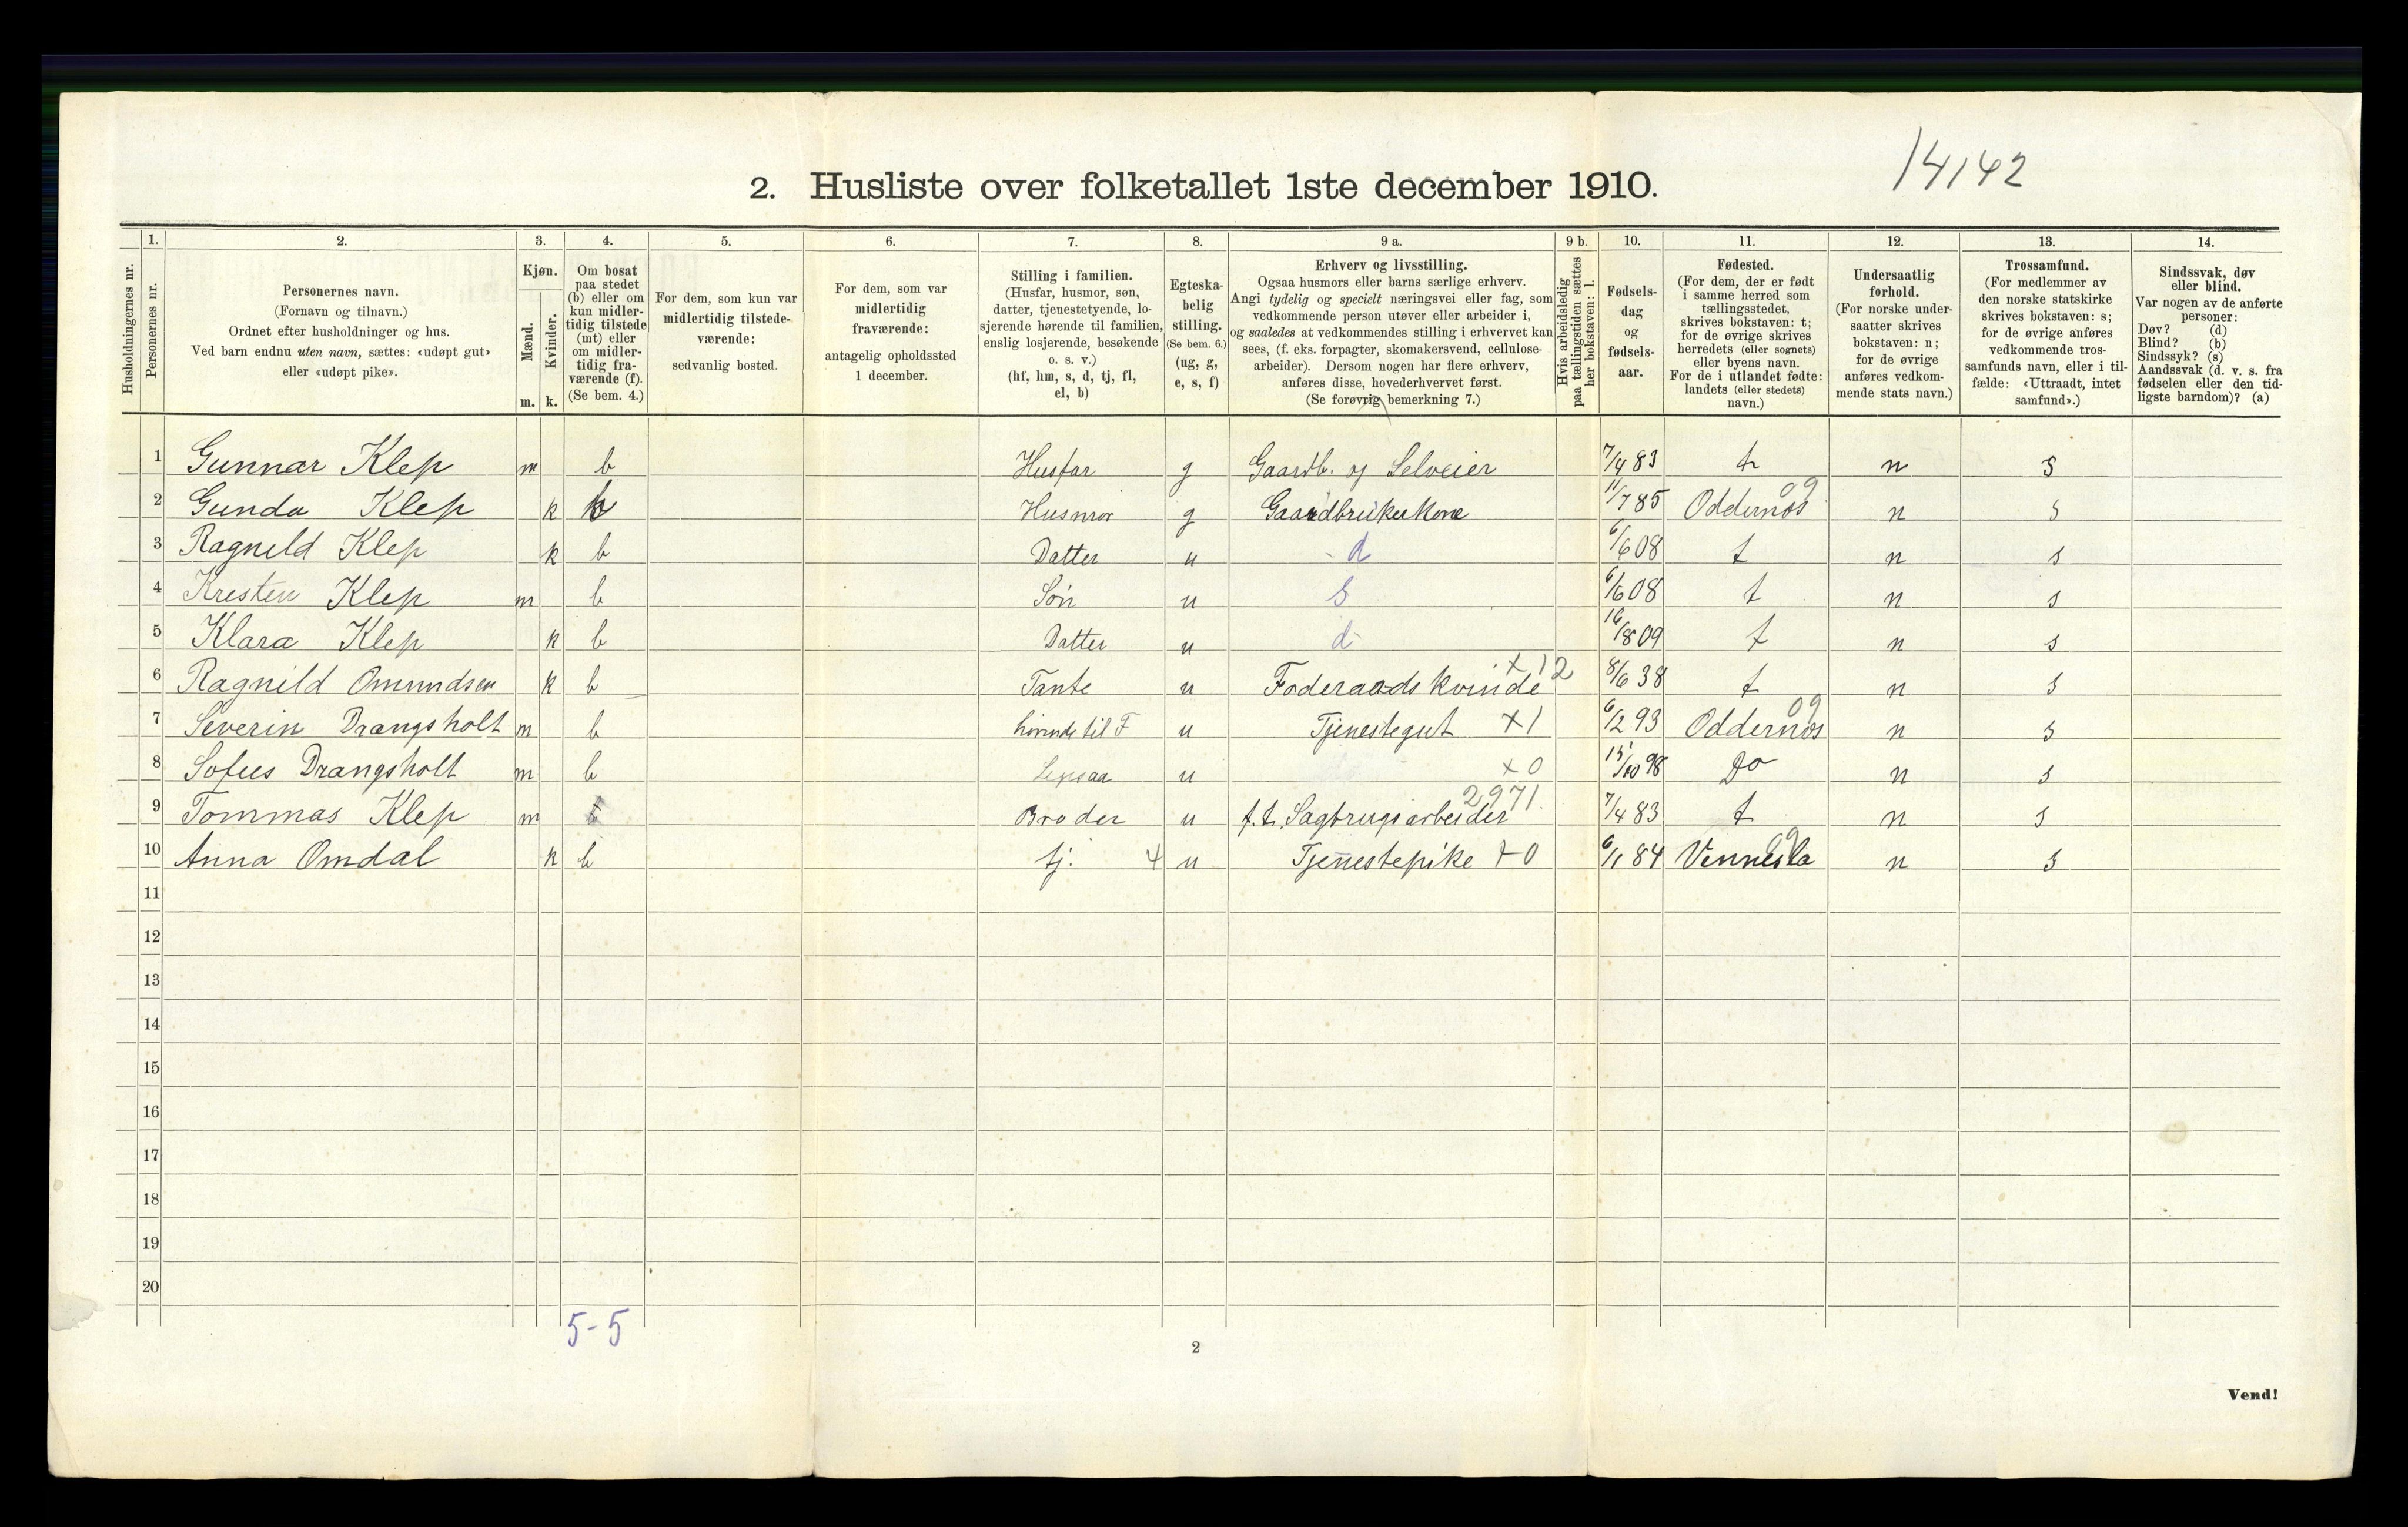 14142
2. Husliste over folketallet 1ste december 1910.
1. 2. 3. 4. 5. 6. 7. 8. 9 a. 9 b. 10. 11. 12. 13. 14.
Husholdningernes nr.
Personernes nr.
Personernes navn.
(Fornavn og tilnavn.)
Ordnet efter husholdninger og hus.
Ved barn endnu uten navn, sættes: «udøpt gut»
eller «udøpt pike».
Kjøn.
Mænd.
Kvinder.
m. k.
Om bosat
paa stedet
(b) eller om
kun midler-
tidig tilstede
(mt) eller
om midler-
tidig fra-
værende (f).
(Se bem. 4.)
For dem, som kun var
midlertidig tilstede-
værende:
sedvanlig bosted.
For dem, som var
midlertidig
fraværende:
antagelig opholdssted
1 december.
Stilling i familien.
(Husfar, husmor, søn,
datter, tjenestetyende, lo-
sjerende hørende til familien,
enslig losjerende, besøkende
o. s. v.)
(hf, hm, s, d, tj, fl,
el, b)
Egteska-
belig
stilling.
(Se bem. 6.)
(ug, g,
e, s, f)
Erhverv og livsstilling.
Ogsaa husmors eller barns særlige erhverv.
Angi tydelig og specielt næringsvei eller fag, som
vedkommende person utøver eller arbeider i,
og saaledes at vedkommendes stilling i erhvervet kan
sees, (f. eks. forpagter, skomakersvend, cellulose-
arbeider). Dersom nogen har flere erhverv,
anføres disse, hovederhvervet først.
(Se forøvrig bemerkning 7.)
Hvis arbeidsledig
paa tællingstiden sættes
her bokstaven: l.
Fødsels-
dag
og
fødsels-
aar.
Fødested.
(For dem, der er født
i samme herred som
tællingsstedet,
skrives bokstaven: t;
for de øvrige skrives
herredets (eller sognets)
eller byens navn.
For de i utlandet fødte:
landets (eller stedets)
navn.)
Undersaatlig
forhold.
(For norske under-
saatter skrives
bokstaven: n;
for de øvrige
anføres vedkom-
mende stats navn.)
Trossamfund.
(For medlemmer av
den norske statskirke
skrives bokstaven: s;
for de øvrige anføres
vedkommende tros-
samfunds navn, eller i til-
fælde: «Uttraadt, intet
samfund».)
Sindssvak, døv
eller blind.
Var nogen av de anførte
personer:
Døv? (d)
Blind? (b)
Sindssyk? (s)
Aandssvak (d. v. s. fra
fødselen eller den tid-
ligste barndom)? (a)
1 Gunnar Klep m b Husfar g Gaardb. og Selveier 7/4 83 t n s
2 Gunda Klep k b Husmor g Gaardbrukerkone 11/7 85 Oddernes 09 n s
3 Ragnild Klep k b Datter u - d 6/6 08 t n s
4 Kresten Klep m b Søn u s 6/6 08 t n s
5 Klara Klep k b Datter u d - 16/8 09 t n s
6 Ragnild Omundsen k b Tante u Føderaadskvinde x 12 8/6 38 t n s
7 Severin Drangsholt m b til F u Tjenestegut x1 6/2 93 Oddernes 09 n s
8 Sofus Drangsholt m b u x0 15/10 98 Do n s
9 Tommas Klep m Broder u f. t. Sagbrugsarbeider 2971. 7/4 83 t n s
10 Anna Omdal k b tj. 4 u Tjenestepike x0 6/1 84 Vennesla 09 n s
11
12
13
14
15
16
17
18
19
20
5-5
2
Vend!